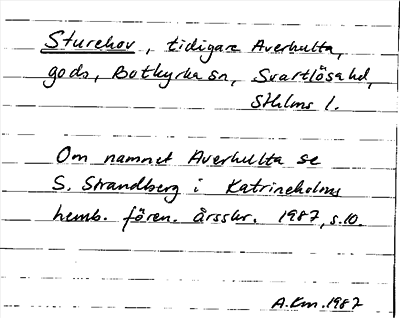 Sturehov, tidigare Averhulta,
gods, Botkyrka sn, Svartlösa hd,
Sthlms l.
Om namnet Averhulta se
S. Strandberg i Katrineholms
hemb. fören. årsskr. 1987, s. 10.
A.Km. 1987